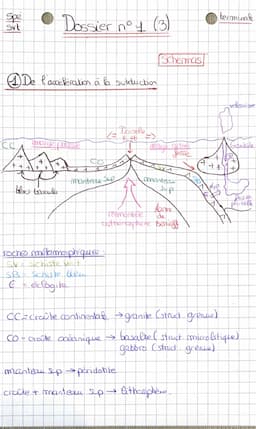 Spé
Svt
Dossier n°1 (3)
terminale
Schémas
① De l'accrétion à la subduction
Dorsale
CC
CO
blocs basculés
manteau sup
manteau
sup
remontée
asthénosphère
plan
de
Benioff
roches métamorphiques :
SV = Schiste vert
SB = Schiste bleu
E = éclogite
CC = croûte continentale → granite (struct. grenue)
CO = croûte océanique → basalte (struct. microlitique)
gabbro (struct. grenue)
manteau sup → péridotite
croûte + manteau sup → lithosphère.